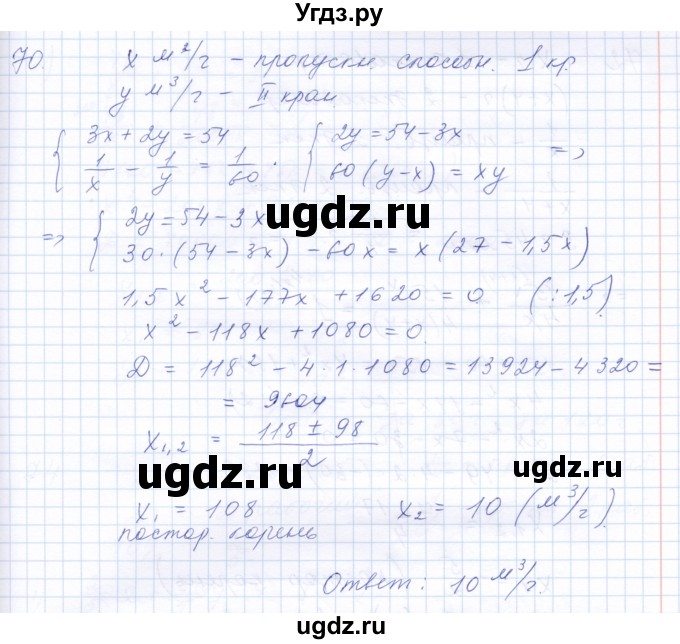 Угдз.ру
70. x м²/г – пропускн. способн. 1 кр.
y м³/г – II кран
{ 3x + 2y = 54 { 2y = 54 – 3x =>
1/x – 1/y = 1/60 . 60(y – x) = xy
=> { 2y = 54 – 3x
30·(54 – 3x) – 60x = x(27 – 1,5x)
ugdz.ru
1,5x² – 177x + 1620 = 0 (:1,5)
x² – 118x + 1080 = 0
D = 118² – 4·1·1080 = 13924 – 4320 =
= 9604
x₁,₂ = (118 ± 98)/2
ugdz.ru ugdz.ru
x₁ = 108 x₂ = 10 (м³/г).
постор. корень
Ответ: 10 м³/г.
ugdz.ru